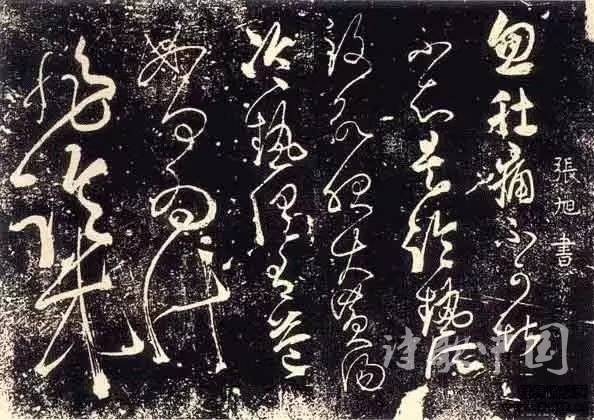 張旭書
忽肚痛不可堪
不知是冷熱所
致欲服大黃湯
冷熱俱有益
如何為計
非臨床
诗歌中国